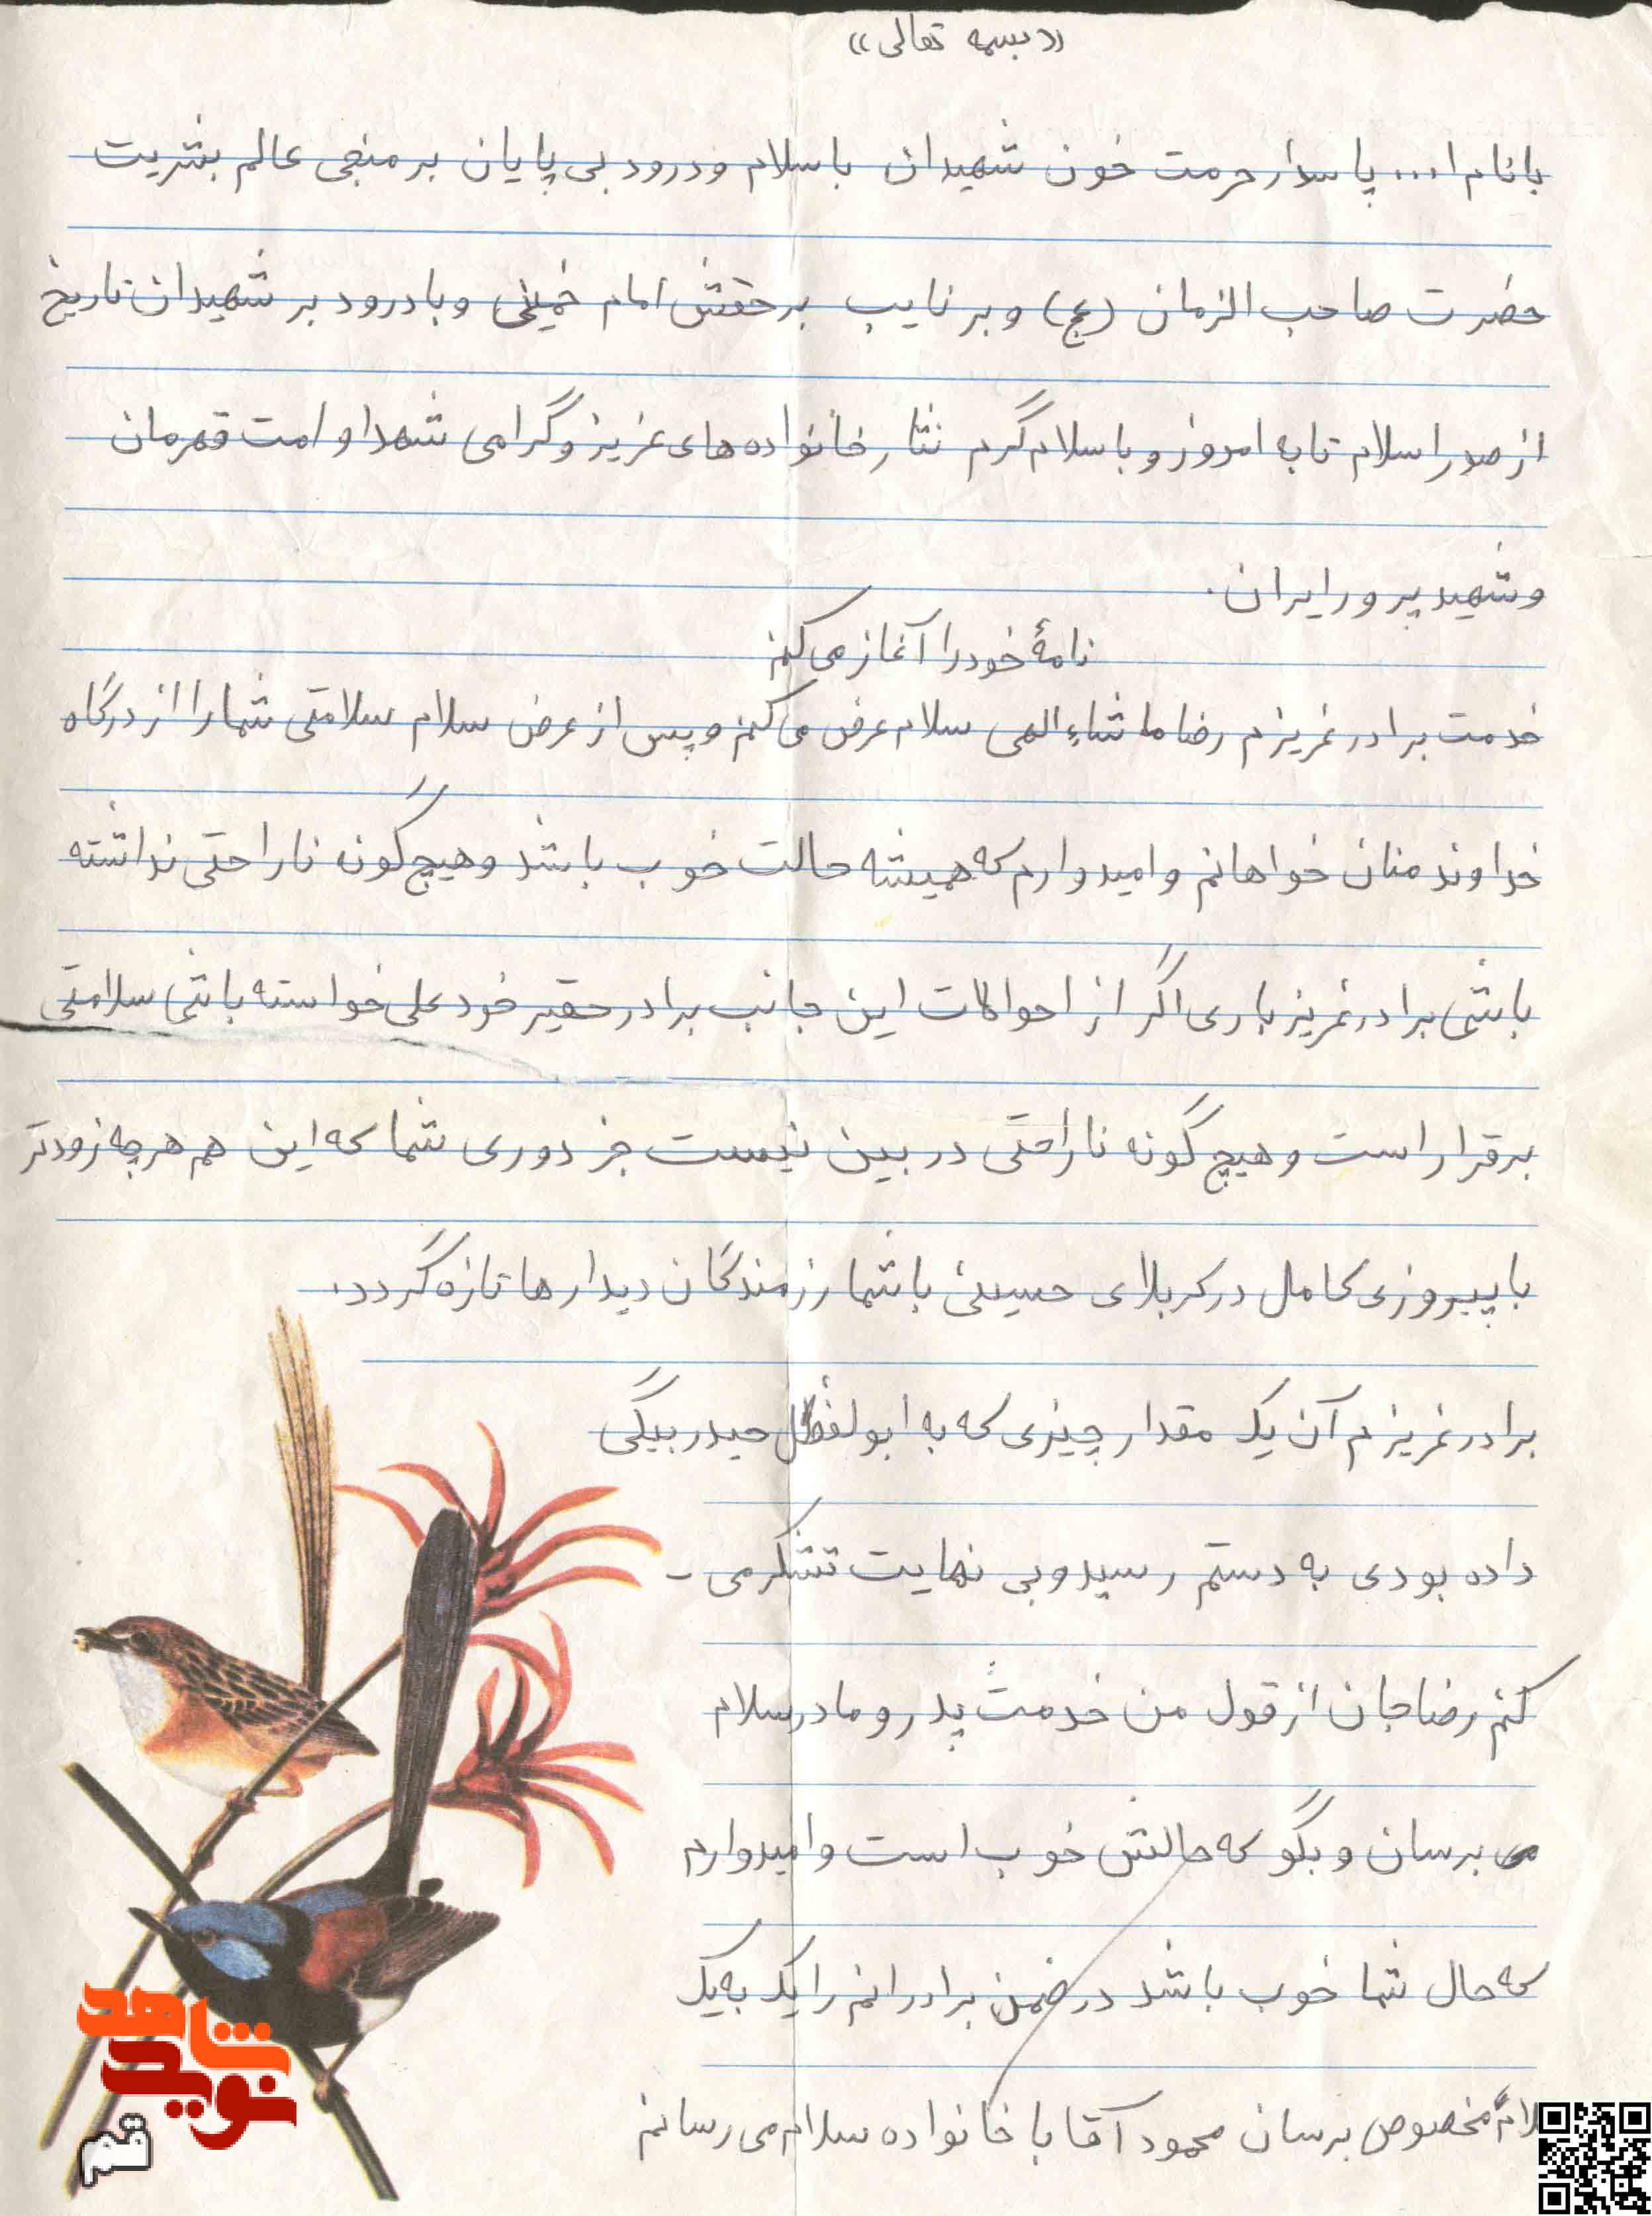 «بسمه تعالی»
با نام ا... پاسدار حرمت خون شهیدان با سلام و درود بی پایان بر منجی عالم بشریت
حضرت صاحب الزمان (عج) و بر نایب بر حقش امام خمینی و با درود بر شهیدان تاریخ
از صدر اسلام تا به امروز و با سلام گرم نثار خانواده های عزیز و گرامی شهدا و امت قهرمان
و شهید پرور ایران.
نامهٔ خود را آغاز می کنم
خدمت برادر عزیزم رضا ماشاءالهی سلام عرض می کنم و پس از عرض سلام سلامتی شما را از درگاه
خداوند منان خواهانم و امیدوارم که همیشه حالت خوب باشد و هیچ گون ناراحتی نداشته
باشی برادر عزیز باری اگر از احوالات این جانب برادر حقیر خود علی خواسته باشی سلامتی
برقرار است و هیچ گونه ناراحتی در بین نیست جز دوری شما که این هم هر چه زودتر
با پیروزی کامل در کربلای حسینی با شما رزمندگان دیدارها تازه گردد.
برادر عزیزم آن یک مقدار چیزی که به ابولفظل حیدر بیگی
داده بودی به دستم رسید و بی نهایت تشکر می -
کنم رضا جان از قول من خدمت پدر و مادر سلام
می برسان و بگو که حالش خوب است و امیدوارم
که حال شما خوب باشد در ضمن برادرانم را یک به یک
لام مخصوص برسان محمود آقا با خانواده سلام می رسانم
نوید شاهد
قم